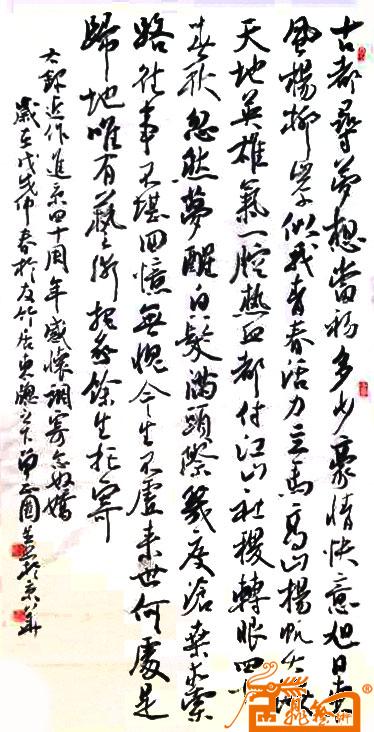 古都尋夢想當初多少豪情快意旭日東
風楊柳岸似我青春活力立馬高山揚帆大海
天地英雄氣一腔熱血都付江山社稷轉眼四十
春秋忽然夢醒白髮滿頭際幾度滄桑求索
路往事不堪回憶無愧今生不虛來世何處是
歸地唯有藝術餘生托寄
近作進京四十周年感懷調寄念奴嬌
歲在戊戌仲春於友竹居